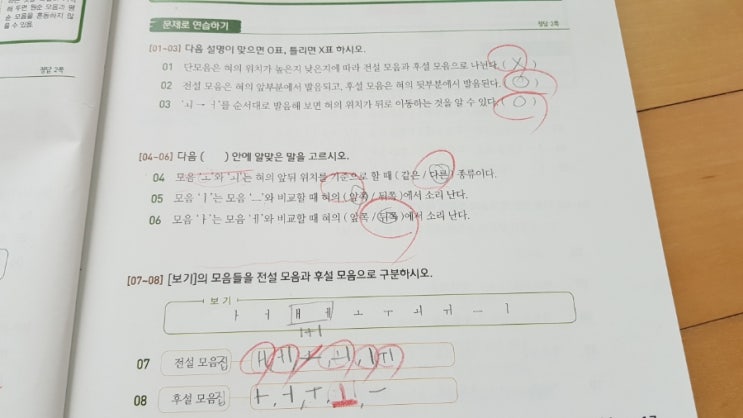 해 두면 원순 모음과 평
순 모음을 혼동하지 않
을 수 있음.
정답 2쪽
문제로 연습하기
정답 2쪽
[01~03] 다음 설명이 맞으면 O표, 틀리면 X표 하시오.
01 단모음은 혀의 위치가 높은지 낮은지에 따라 전설 모음과 후설 모음으로 나뉜다. ( X )
02 전설 모음은 혀의 앞부분에서 발음되고, 후설 모음은 혀의 뒷부분에서 발음된다. ( O )
03 'ㅚ → ㅓ'를 순서대로 발음해 보면 혀의 위치가 뒤로 이동하는 것을 알 수 있다. ( O )
[04~06] 다음 ( ) 안에 알맞은 말을 고르시오.
04 모음 'ㅗ'와 'ㅚ'는 혀의 앞뒤 위치를 기준으로 할 때 (같은 / 다른) 종류이다.
05 모음 'ㅣ'는 모음 'ㅡ'와 비교할 때 혀의 (앞쪽 / 뒤쪽)에서 소리 난다.
06 모음 'ㅏ'는 모음 'ㅐ'와 비교할 때 혀의 (앞쪽 / 뒤쪽)에서 소리 난다.
[07~08] [보기]의 모음들을 전설 모음과 후설 모음으로 구분하시오.
보기
ㅏ ㅓ ㅐ ㅔ ㅗ ㅜ ㅚ ㅟ ㅡ ㅣ
07 전설 모음집 ㅐ, ㅔ, ㅚ, ㅣ, ㅟ
08 후설 모음집 ㅏ, ㅓ, ㅜ, ㅡ